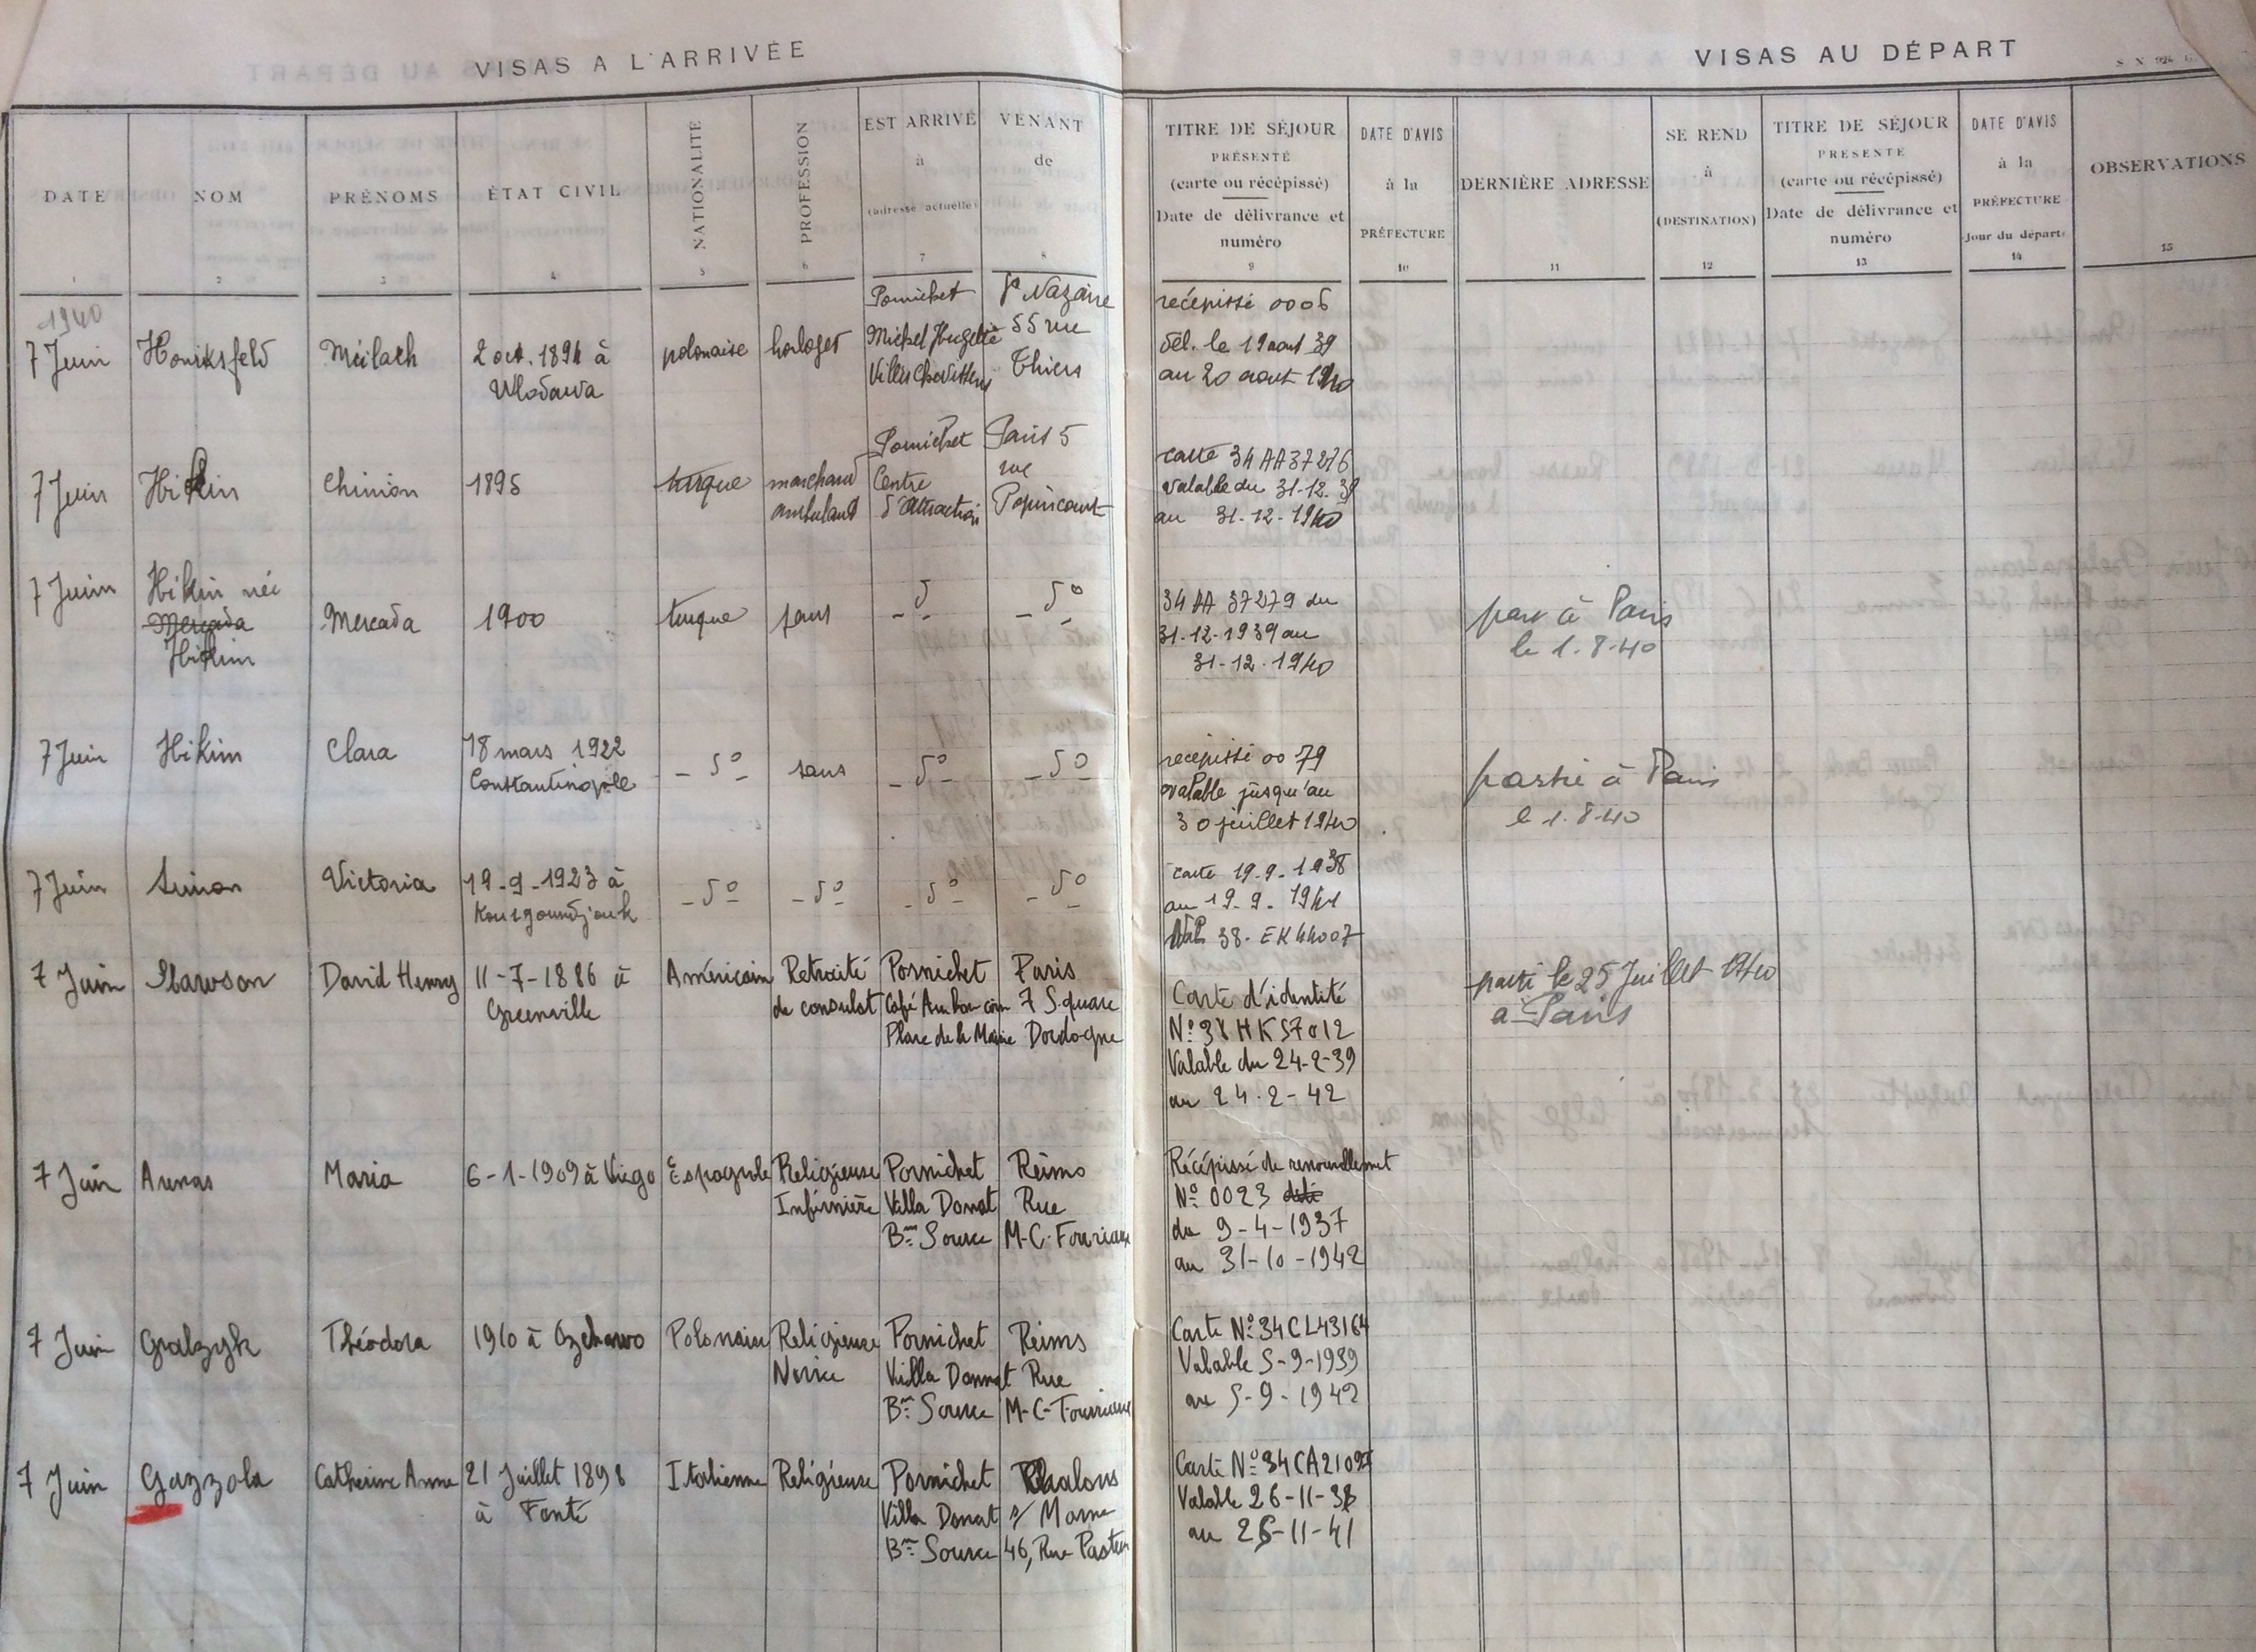 VISAS A L'ARRIVÉE
VISAS AU DÉPART
DATE
NOM
PRÉNOMS
ÉTAT CIVIL
NATIONALITÉ
PROFESSION
EST ARRIVÉ
à
(adresse actuelle)
VENANT
de
TITRE DE SÉJOUR
PRÉSENTÉ
(carte ou récépissé)
Date de délivrance et
numéro
DATE D'AVIS
à la
PRÉFECTURE
DERNIÈRE ADRESSE
SE REND
à
(DESTINATION)
TITRE DE SÉJOUR
PRÉSENTÉ
(carte ou récépissé)
Date de délivrance et
numéro
DATE D'AVIS
à la
PRÉFECTURE
Jour du départ
OBSERVATIONS
1 2 3 4 5 6 7 8 9 10 11 12 13 14 15
1940
7 Juin
Honiksfeld
Meilach
2 oct. 1894 à
Wlodawa
polonaise
horloger
Pornichet
Michel
St Nazaire
55 rue
Thiers
recépissé 0006
dél. le 19 aout 39
au 20 aout 1940
7 Juin
Hikin
Chimon
1895
turque
marchand
ambulant
Pornichet
Centre
d'attraction
Paris 5
rue
Popincourt
carte 34 AA 37276
valable du 31-12-39
au 31-12-1940
7 Juin
Hikin née
Mercada
Hikim
Mercada
1900
turque
sans
- d° -
- d° -
34 AA 37279 du
31-12-1939 au
31-12-1940
part à Paris
le 1-8-40
7 Juin
Hikim
Clara
18 mars 1922
Constantinople
- d° -
sans
- d° -
- d° -
recépissé 0079
valable jusqu'au
30 juillet 1940
partie à Paris
le 1-8-40
7 Juin
Simon
Victoria
19-9-1923 à
- d° -
- d° -
- d° -
- d° -
carte 19-9-1938
au 19-9-1941
38-EK44007
7 Juin
Slawson
David Henry
11-7-1886 à
Greenville
Américain
Retraité
du consulat
Pornichet
Café Au bon coin
Place de la Mairie
Paris
7 Square
Dordogne
Carte d'identité
N° 38 HK 57012
Valable du 24-2-39
au 24-2-42
parti le 25 Juillet 1940
à Paris
7 Juin
Arenas
Maria
6-1-1909 à Viego
Espagnole
Religieuse
Infirmière
Pornichet
Villa Donat
Bne Source
Reims
Rue
M-C-Fourriaux
Récépissé de renouvellement
N° 0023
du 9-4-1937
au 31-10-1942
7 Juin
Gralzyk
Théodora
1910 à Ozchowo
Polonaise
Religieuse
Novice
Pornichet
Villa Donnat
Bne Source
Reims
Rue
M-C-Fourriaux
Carte N° 34 CL43164
Valable 5-9-1939
au 5-9-1942
7 Juin
Gazzola
Catherine Anne
21 Juillet 1898
à Fonte
Italienne
Religieuse
Pornichet
Villa Donat
Bne Source
Chalons
s/ Marne
46, Rue Pasteur
Carte N° 34 CA21097
Valable 26-11-38
au 26-11-41